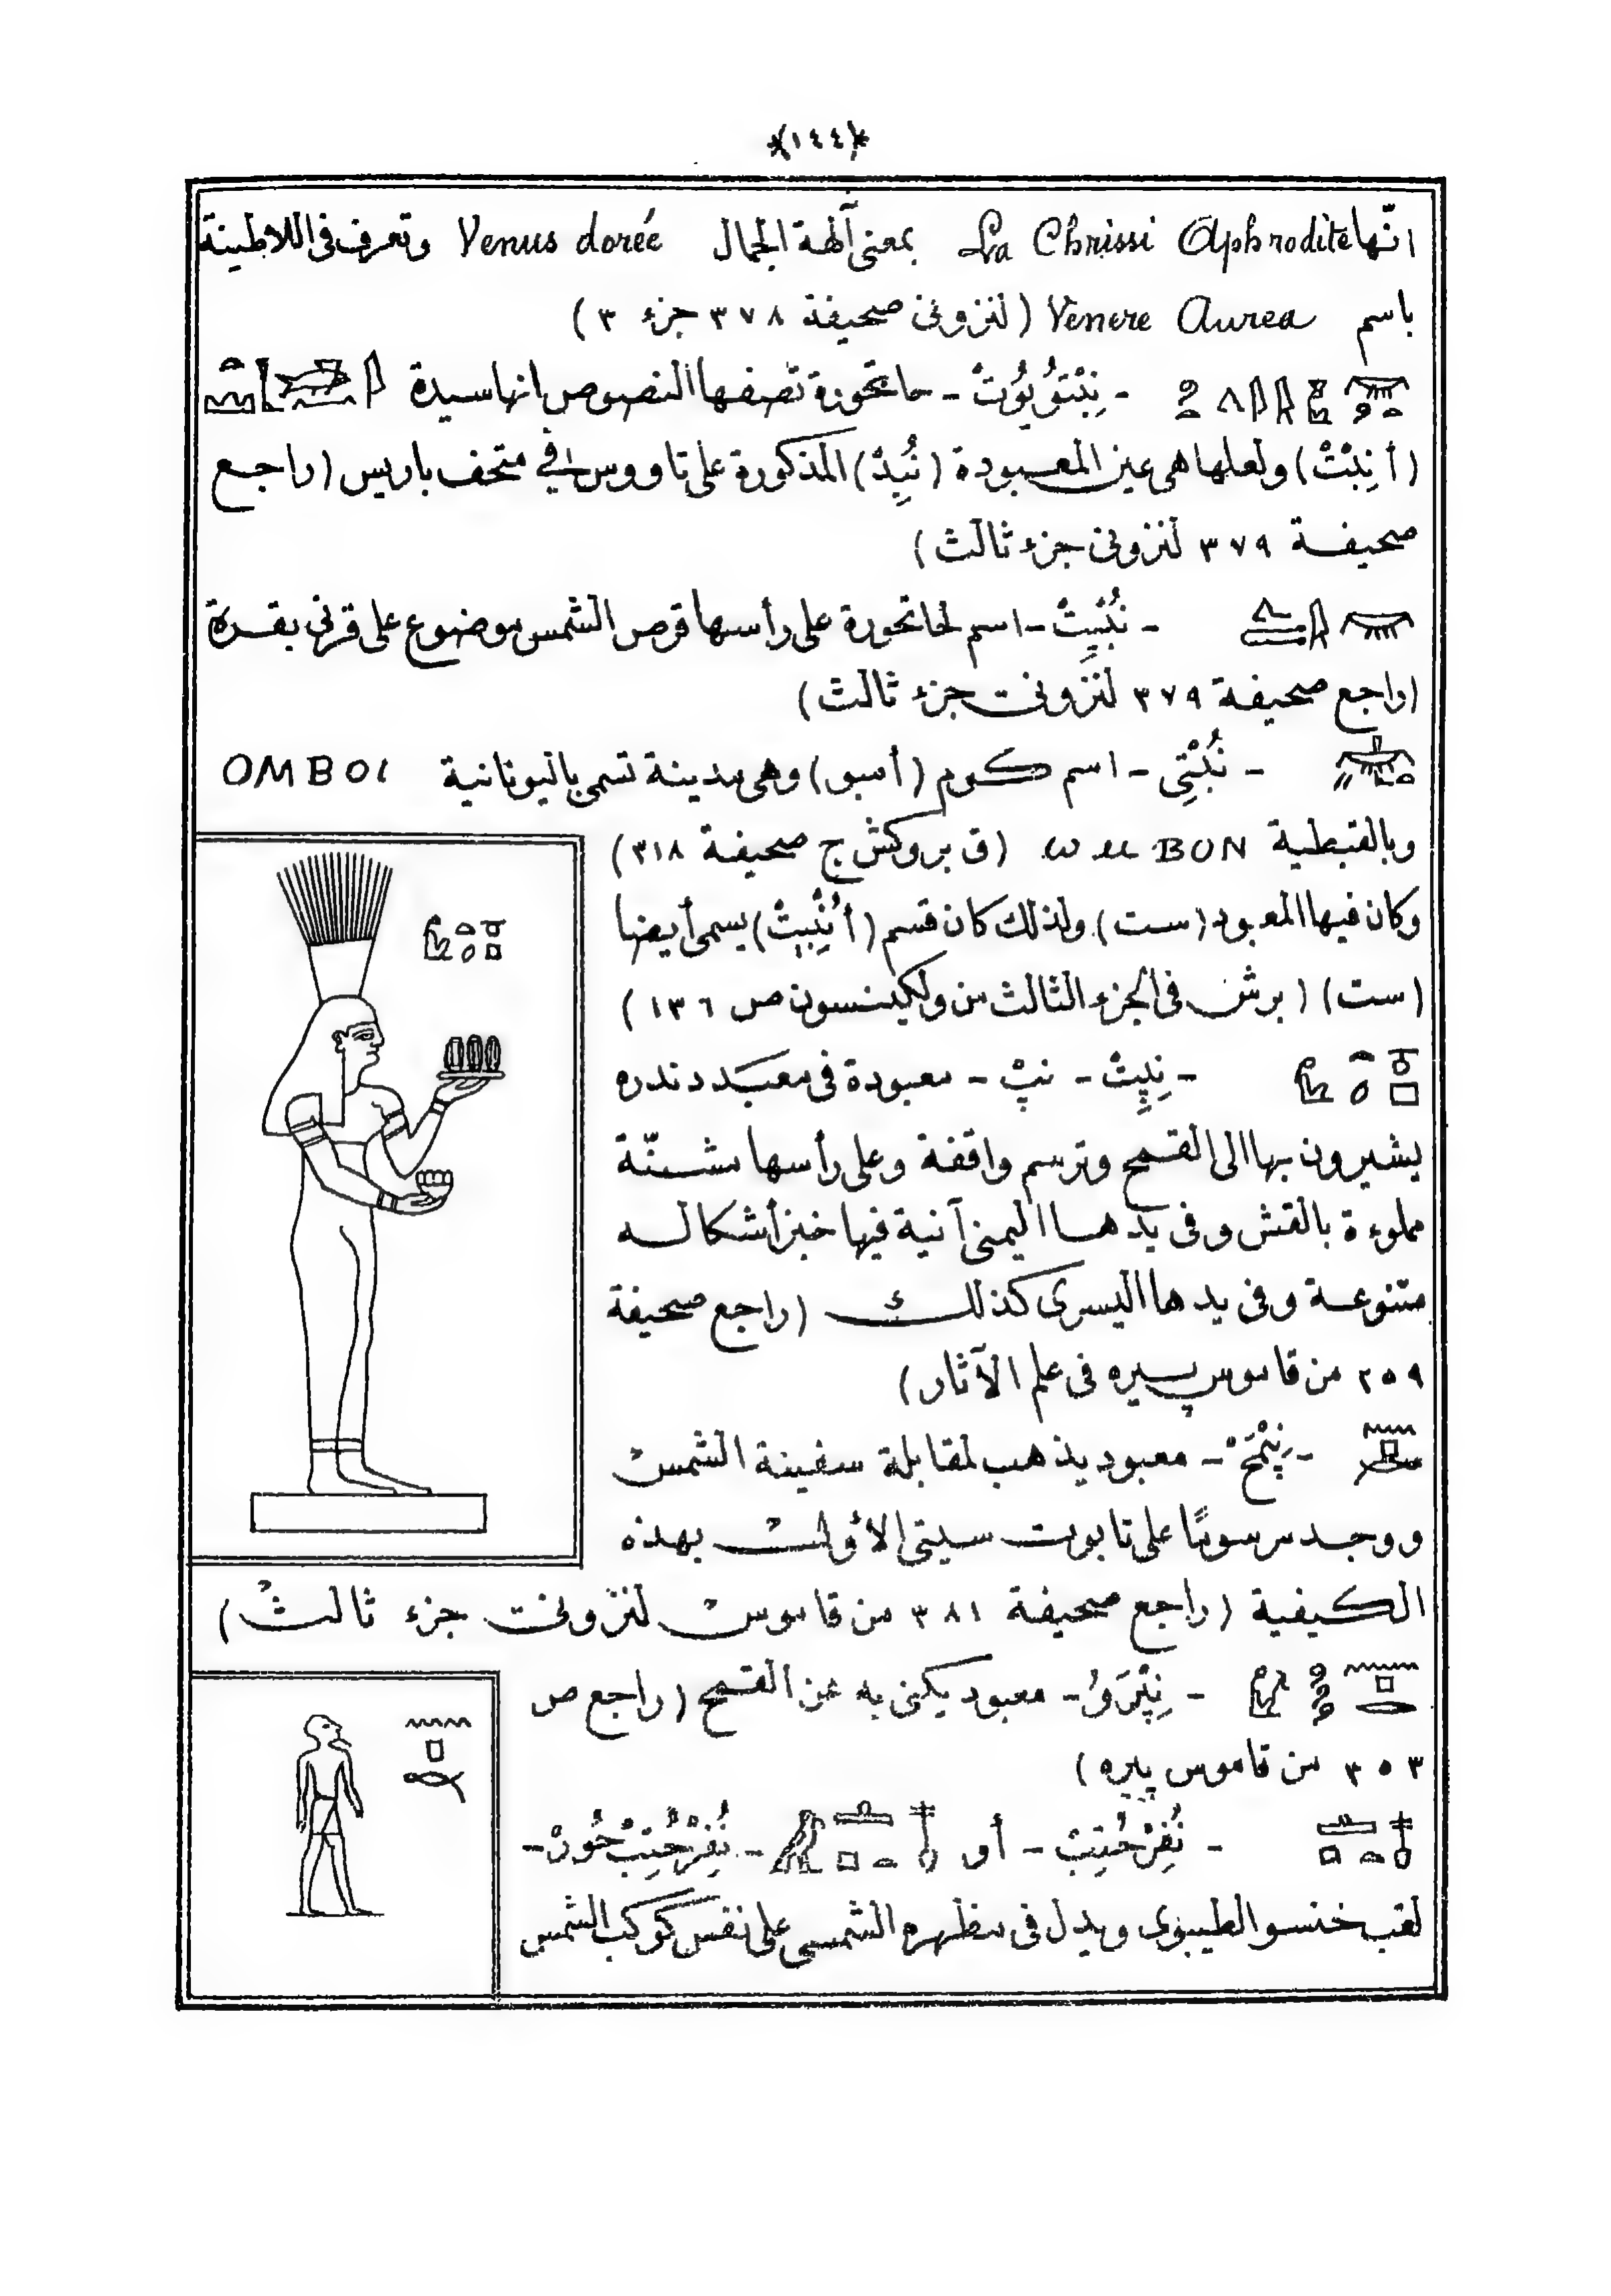 *(١٤٤)*
انّها La Chrissi Aphrodite بمعنى آلهة الجمال Venus doreé وتعرف فى اللاطينة
باسم Venere Aurea (لنزونى صحيفة ٣٧٨ جزء ٣)
- نِبْتَوُيُوتْ - حاتحورة تصفها النصوص انها سيدة
(أنِبْتْ) ولعلها هى عين المعبودة (نُبِدْ) المذكورة على تاووس فى متحف باريس (راجع
صحيفة ٣٧٩ لنزونى جزء ثالث)
- نُبْيِتْ - اسم لحاتحورة على رأسها قرص الشمس موضوع على قرنى بقرة
(راجع صحيفة ٣٧٩ لنزونت جزء ثالث)
- نُبْتِى - اسم كوم (أمبو) وهى مدينة تسمى باليونانية OMBOI
وبالقبطية ⲱⲙBON (ق بروكش ج صحيفة ٣١٨)
وكان فيها المعبود (ست) ولذلك كان قسم (أنُبْيِتْ) يسمى أيضا
(ست) (برش فى الجزء الثالث من ولكينسون ص ١٣٦)
- نِپِتْ - نپْ - معبودة فى معبد دندره
يشيرون بها الى القمح وترسم واقفة وعلى رأسها مشنّة
مملوءة بالقش وفى يدها اليمنى آنية فيها خبز أشكاله
متنوعة وفى يدها اليسرى كذلك (راجع صحيفة
٢٥٩ من قاموس پيره فى علم الآثار)
- نِپْمَحْ - معبود يذهب لمقابلة سفينة الشمس
ووجد مرسومًا على تابوت سيتى الاؤل بهذه
الكيفية (راجع صحيفة ٣٨١ من قاموس لنزونت جزء ثالث)
- نِپْرَوُ - معبود يكنى به عن القمح (راجع ص
٣٥٣ من قاموس پيره)
- نُفِرْحُتِبْ - أو - نُفِرْحُتِبْ خُونْ -
لقب خنسو الطيبوى ويدل فى مظهره الشمسى على نفس كوكب الشمس